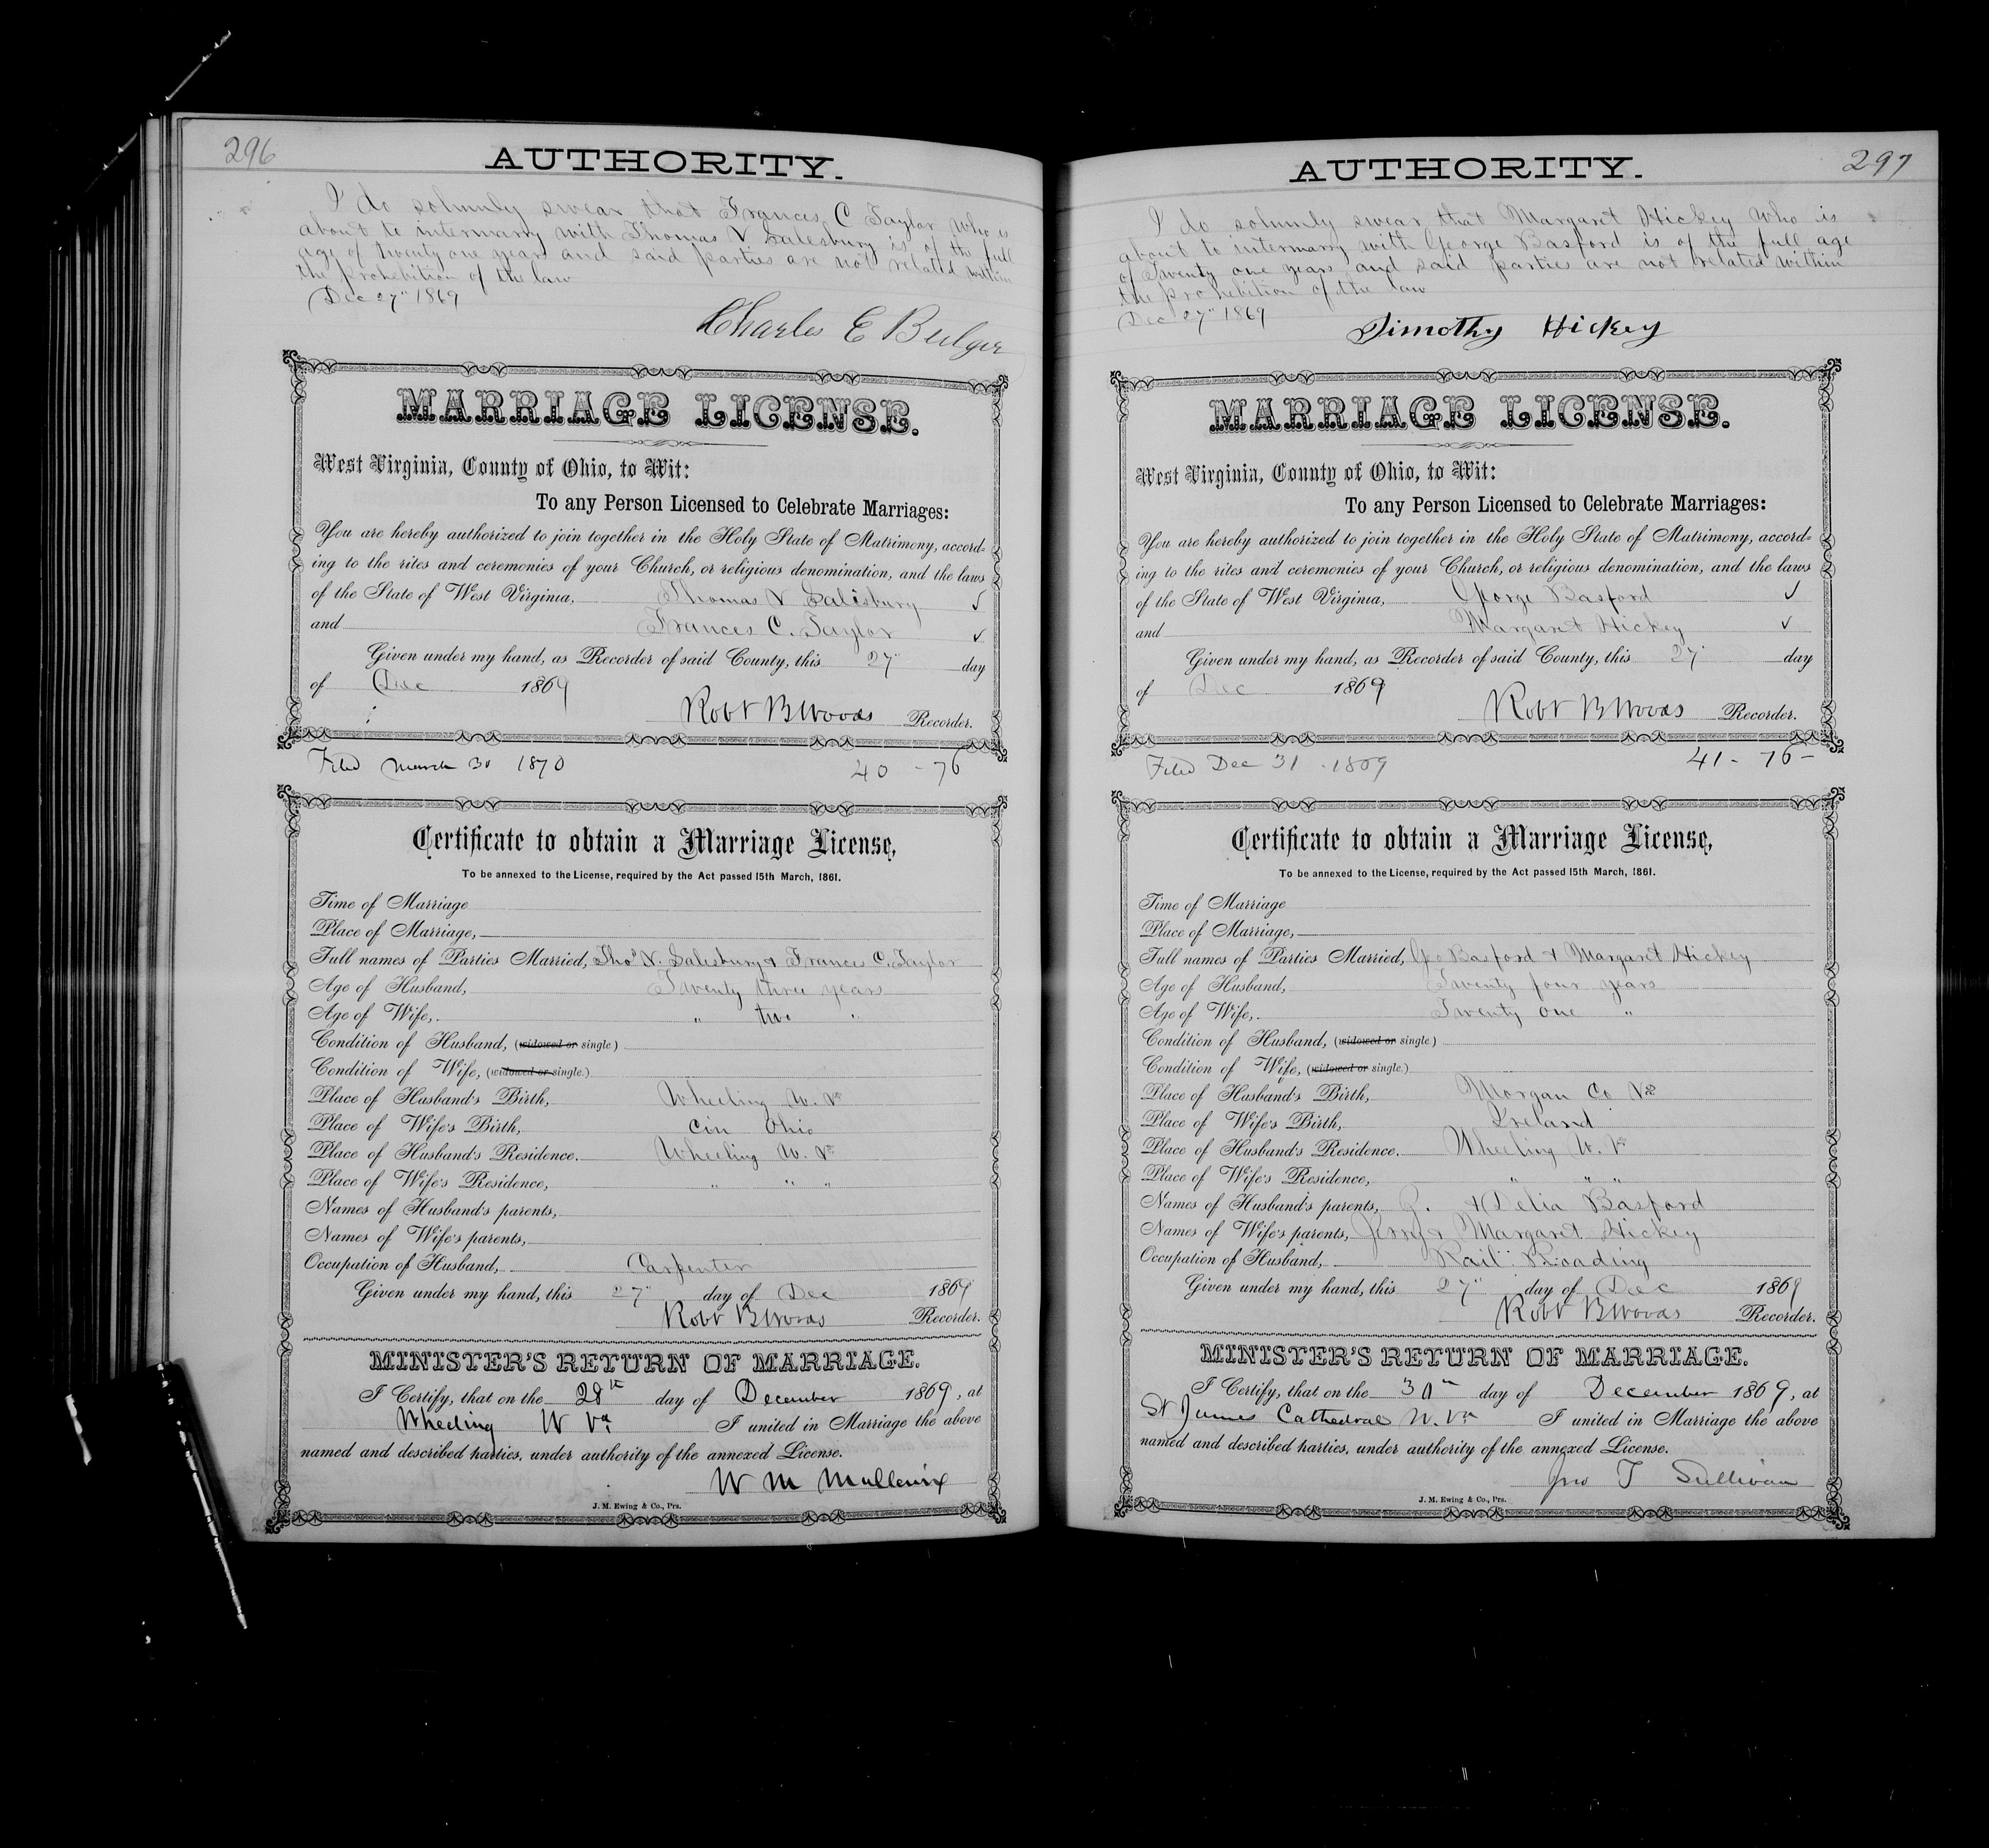 296
AUTHORITY.
I do solumnly swear that Frances C Taylor who is
about to intermarry with Thomas N Salesbury is of the full
age of twenty one years and said parties are not related within
the prohibition of the law
Dec 27" 1869
Charles E Bulger
MARRIAGE LICENSE.
West Virginia, County of Ohio, to Wit:
To any Person Licensed to Celebrate Marriages:
You are hereby authorized to join together in the Holy State of Matrimony, accord-
ing to the rites and ceremonies of your Church, or religious denomination, and the laws
of the State of West Virginia, Thomas N Salisbury ✓
and Frances C. Taylor ✓
Given under my hand, as Recorder of said County, this 27" day
of Dec 1869
Robt B Woods Recorder.
Filed March 30 1870 40 - 76
Certificate to obtain a Marriage License,
To be annexed to the License, required by the Act passed 15th March, 1861.
Time of Marriage
Place of Marriage,
Full names of Parties Married, Thos N. Salesbury & Frances C. Taylor
Age of Husband, Twenty three years
Age of Wife, " two "
Condition of Husband, (widowed or single)
Condition of Wife, (widowed or single.)
Place of Husband's Birth, Wheeling W. Va
Place of Wife's Birth, Cin Ohio
Place of Husband's Residence. Wheeling W. Va
Place of Wife's Residence, " " "
Names of Husband's parents,
Names of Wife's parents,
Occupation of Husband, Carpenter
Given under my hand, this 27" day of Dec 1869
Robt B Woods Recorder.
MINISTER'S RETURN OF MARRIAGE.
I Certify, that on the 28th day of December 1869, at
Wheeling W Va I united in Marriage the above
named and described parties, under authority of the annexed License.
W M Mullenix
J. M. Ewing & Co., Prs.
297
AUTHORITY.
I do solumnly swear that Margaret Hickey who is
about to intermarry with George Basford is of the full age
of Twenty one years and said parties are not related within
the prohibition of the law
Dec 27" 1869
Timothy Hickey
MARRIAGE LICENSE.
West Virginia, County of Ohio, to Wit:
To any Person Licensed to Celebrate Marriages:
You are hereby authorized to join together in the Holy State of Matrimony, accord-
ing to the rites and ceremonies of your Church, or religious denomination, and the laws
of the State of West Virginia, George Basford ✓
and Margaret Hickey ✓
Given under my hand, as Recorder of said County, this 27" day
of Dec 1869
Robt B Woods Recorder.
Filed Dec 31 - 1869 41 - 76 -
Certificate to obtain a Marriage License,
To be annexed to the License, required by the Act passed 15th March, 1861.
Time of Marriage
Place of Marriage,
Full names of Parties Married, Geo Basford & Margaret Hickey
Age of Husband, Twenty four years
Age of Wife, Twenty one "
Condition of Husband, (widowed or single)
Condition of Wife, (widowed or single.)
Place of Husband's Birth, Morgan Co Va
Place of Wife's Birth, Ireland
Place of Husband's Residence. Wheeling W. Va
Place of Wife's Residence, " " "
Names of Husband's parents, & Delia Basford
Names of Wife's parents, Jerry & Margaret Hickey
Occupation of Husband, Rail Roading
Given under my hand, this 27" day of Dec 1869
Robt B Woods Recorder.
MINISTER'S RETURN OF MARRIAGE.
I Certify, that on the 30th day of December 1869, at
St James Cathedral W. Va I united in Marriage the above
named and described parties, under authority of the annexed License.
Jno T Sullivan
J. M. Ewing & Co., Prs.